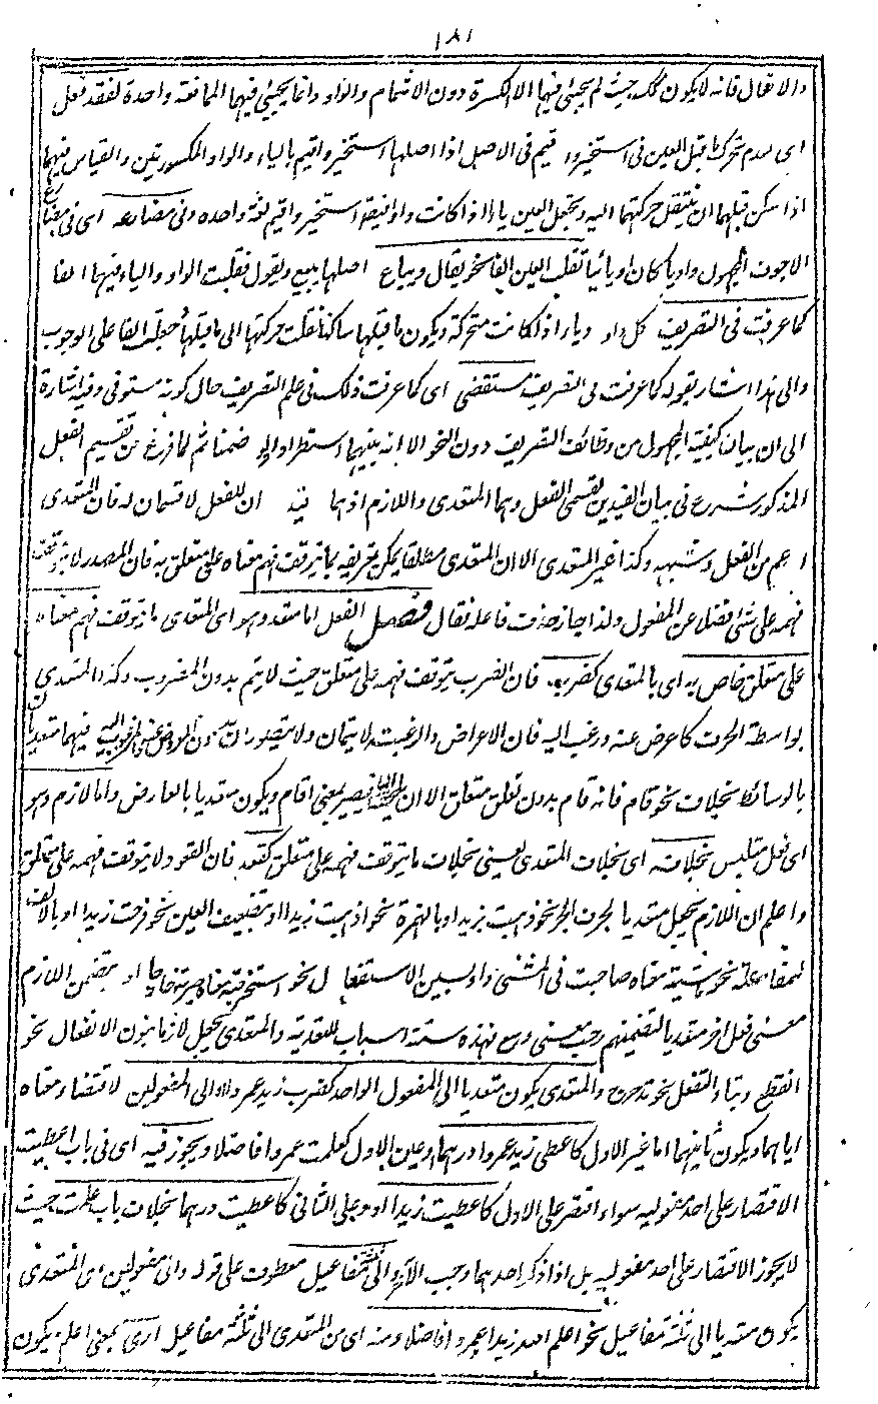 ١٨١
والانفعال فانه لا يكون كذلك حيث لم يجئ فيها الا الكسرة دون الاشمام والواو وانما يجيئ فيهما الممانعة واحدة لفقد فعل
اى عدم تحرك ما قبل العين فى استخير واقيم فى الاصل اذا اصلهما استخير واقيم بالياء والواو المكسورتين والقياس فيهما
اذا سكن قبلهما ان ينتقل حركتهما اليه وتجعل العين ياء اذا كانت واوا نحو استخير واقيم لغة واحدة وفى مضارعه اى فى مضارع
الاجوف المجهول واويا كان او يائيا تقلب العين الفا نحو يقال ويباع اصلهما يبيع ويقول فقلبت الواو والياء فيهما الفا
كما عرفت فى التصريف كل واو وياء اذا كانت متحركة ويكون ما قبلها ساكنا نقلت حركتها الى ما قبلها جعلت الفا على الوجوب
والى هذا اشار بقوله كما عرفت فى التصريف مستقضى اى كما عرفت ذلك فى علم التصريف حال كونه مستوفى وفيه اشارة
الى ان بيان كيفية المجهول من وظائف التصريف دون النحو الا انه بينها استطرادا ضمنا ثم لما فرغ عن تقسيم الفعل
المذكور شرع فى بيان القيدين لقسمى الفعل وهما المتعدى واللازم اذهما ان للفعل لا قسمان له فان المتعدى
اعم من الفعل وشبهه وكذا غير المتعدى الا ان المتعدى مطلقا يمكن تعريفه بما يتوقف فهم معناه على متعلق به فان المصدر لا يتوقف
فهمه على شئ فضلا عن المفعول ولذا جاز حذف فاعله فقال فصل الفعل اما متعد وهو اى المتعدى ما يتوقف فهم معناه
على متعلق خاص به اى بالمتعدى كضربه فان الضرب يتوقف فهمه على متعلق حيث لا يتم بدون المضروب وكذا المتعدى
بواسطة الحرف كاعرض عنه ورغب اليه فان الاعراض والرغبة لا يتمان ولا يتصوران بدون المعرض عنه والمرغوب اليه فهما متعديان
بالوسائط بخلاف نحو قام فانه قام بدون تعلق متعلق الا ان يلحقه الباء فيصير بمعنى اقام ويكون متعديا بالعارض واما لازم وهو
اى فعل متلبس بخلافه اى بخلاف المتعدى يعنى بخلاف ما يتوقف فهمه على متعلق كقعد فان القعود لا يتوقف فهمه على متعلق
واعلم ان اللازم يجعل متعديا بحرف الجر نحو ذهبت بزيد او بالهمزة نحو اذهبت زيدا او بتضعيف العين نحو فرحت زيدا او بالف
المفاعلة نحو ماشيته معناه صاحبت فى المشى او بسين الاستفعال نحو استخرجته معناه صيرته خارجا او بتضمن اللازم
معنى فعل اخر متعد بالتضمينهم رحب معنى وسع فهذه ستة اسباب للتعدية والمتعدى يجعل لازما بنون الانفعال نحو
انقطع وبتاء التفعل نحو تدحرج والمتعدى يكون متعديا الى المفعول الواحد كضرب زيد عمروا والى المفعولين لاقتضاء معناه
اياهما ويكون ثانيهما اما غير الاول كاعطى زيد عمروا درهما وعين الاول كعلمت عمروا فاضلا ويجوز فيه اى فى باب اعطيت
الاقتصار على احد مفعوليه سواء اقتصر على الاول كاعطيت زيدا او على الثانى كاعطيت درهما بخلاف باب علمت حيث
لا يجوز الاقتصار على احد مفعوليه بل اذا ذكر احدهما وجب الآخر والى ثلثة مفاعيل معطوف على قوله والى مفعولين اى المتعدى
يكون متعديا الى ثلثة مفاعيل نحو اعلم الله زيدا عمروا فاضلا ومنه اى من المتعدى الى ثلثة مفاعيل ارى بمعنى اعلم ويكون